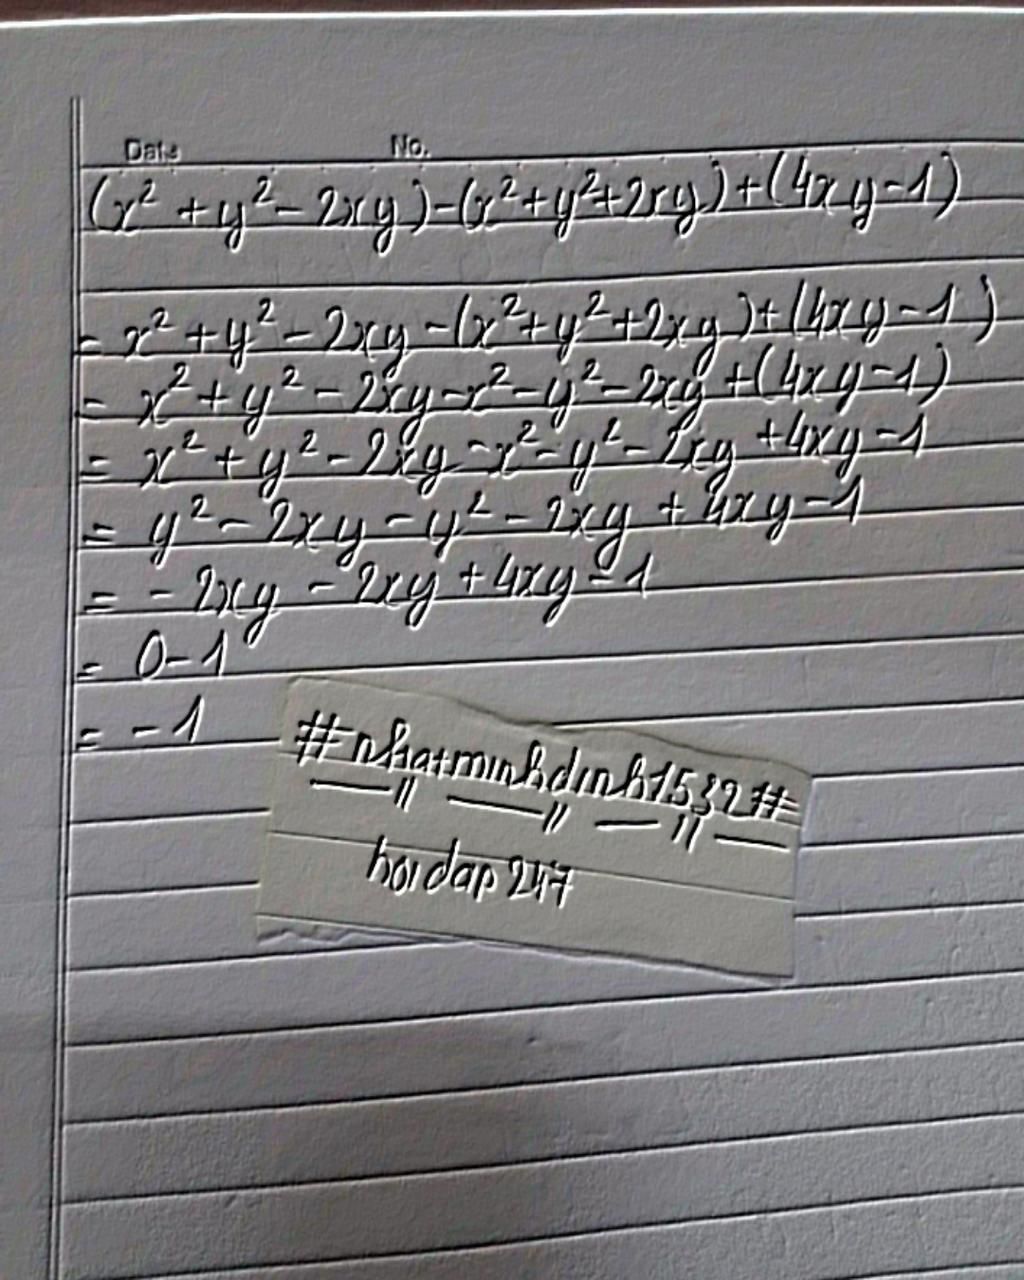 Date No.
(x² + y² - 2xy) - (x² + y² + 2xy) + (4xy - 1)
= x² + y² - 2xy - (x² + y² + 2xy) + (4xy - 1)
= x² + y² - 2xy - x² - y² - 2xy + (4xy - 1)
= x² + y² - 2xy - x² - y² - 2xy + 4xy - 1
= y² - 2xy - y² - 2xy + 4xy - 1
= - 2xy - 2xy + 4xy - 1
= 0 - 1
= - 1
#nhatminhdinh1532#
hoidap247